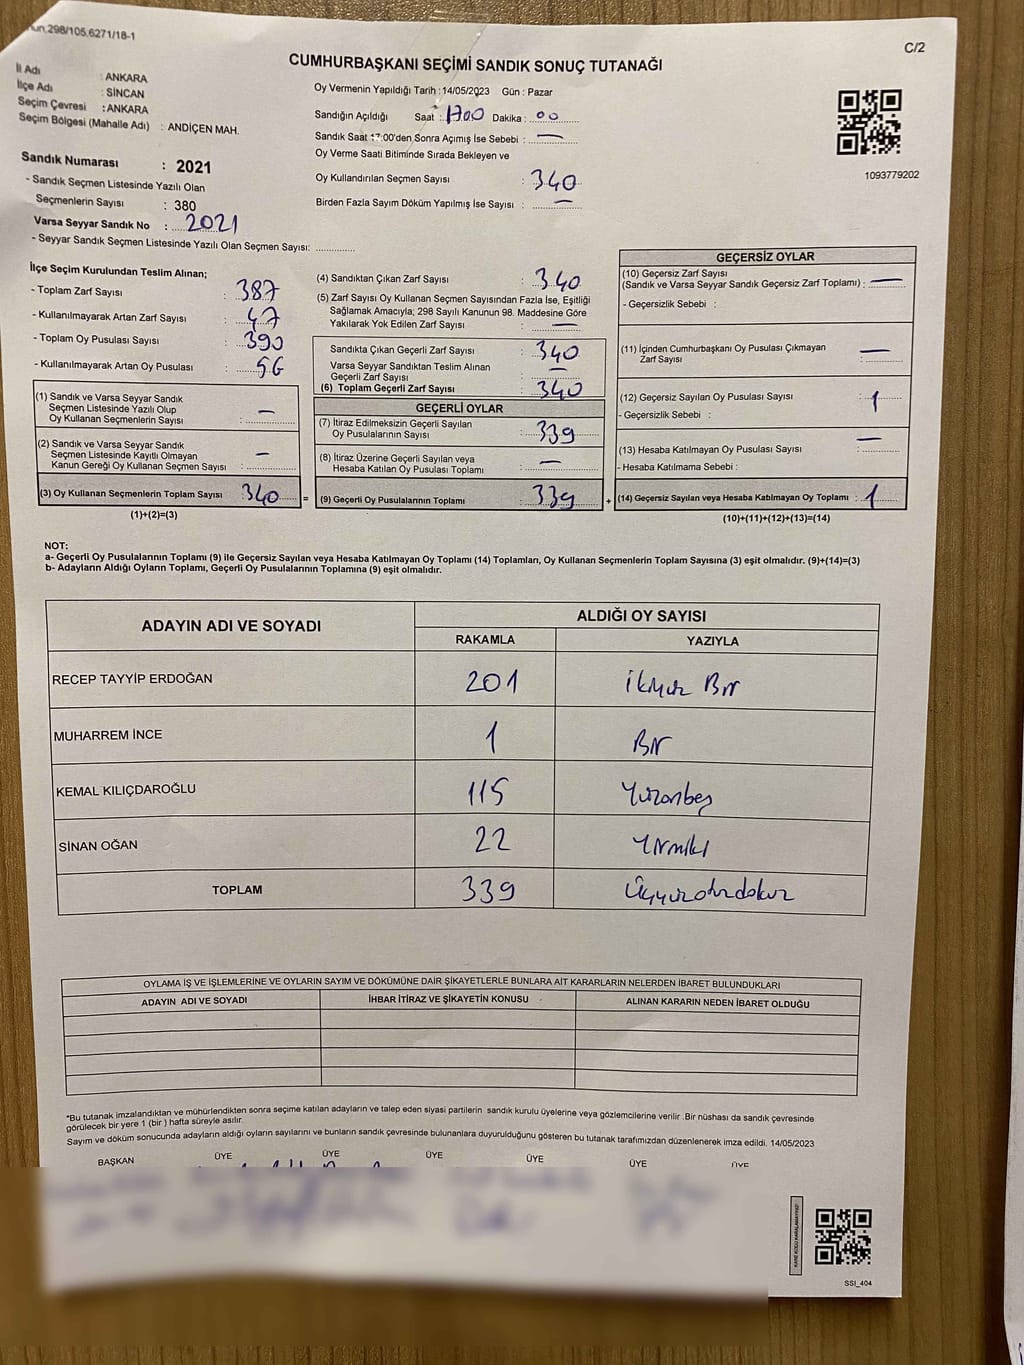 298/105.6271/18-1
C/2
CUMHURBAŞKANI SEÇİMİ SANDIK SONUÇ TUTANAĞI
İl Adı : ANKARA
İlçe Adı : SİNCAN
Seçim Çevresi : ANKARA
Seçim Bölgesi (Mahalle Adı) : ANDİÇEN MAH.
Sandık Numarası : 2021
- Sandık Seçmen Listesinde Yazılı Olan
Seçmenlerin Sayısı : 380
Varsa Seyyar Sandık No : 2021
- Seyyar Sandık Seçmen Listesinde Yazılı Olan Seçmen Sayısı: ............
Oy Vermenin Yapıldığı Tarih : 14/05/2023 Gün : Pazar
Sandığın Açıldığı Saat : 1700 Dakika : 00
Sandık Saat 17:00'den Sonra Açımış İse Sebebi : —
Oy Verme Saati Bitiminde Sırada Bekleyen ve
Oy Kullandırılan Seçmen Sayısı : 340
Birden Fazla Sayım Döküm Yapılmış İse Sayısı : —
1093779202
İlçe Seçim Kurulundan Teslim Alınan;
- Toplam Zarf Sayısı : 387
- Kullanılmayarak Artan Zarf Sayısı : 47
- Toplam Oy Pusulası Sayısı : 390
- Kullanılmayarak Artan Oy Pusulası : 56
(1) Sandık ve Varsa Seyyar Sandık
Seçmen Listesinde Yazılı Olup
Oy Kullanan Seçmenlerin Sayısı : —
(2) Sandık ve Varsa Seyyar Sandık
Seçmen Listesinde Kayıtlı Olmayan
Kanun Gereği Oy Kullanan Seçmen Sayısı : —
(3) Oy Kullanan Seçmenlerin Toplam Sayısı 340 =
(1)+(2)=(3)
(4) Sandıktan Çıkan Zarf Sayısı : 340
(5) Zarf Sayısı Oy Kullanan Seçmen Sayısından Fazla İse, Eşitliği
Sağlamak Amacıyla; 298 Sayılı Kanunun 98. Maddesine Göre
Yakılarak Yok Edilen Zarf Sayısı : —
Sandıkta Çıkan Geçerli Zarf Sayısı : 340
Varsa Seyyar Sandıktan Teslim Alınan
Geçerli Zarf Sayısı : —
(6) Toplam Geçerli Zarf Sayısı : 340
GEÇERLİ OYLAR
(7) İtiraz Edilmeksizin Geçerli Sayılan
Oy Pusulalarının Sayısı : 339
(8) İtiraz Üzerine Geçerli Sayılan veya
Hesaba Katılan Oy Pusulası Toplamı : —
(9) Geçerli Oy Pusulalarının Toplamı : 339 +
GEÇERSİZ OYLAR
(10) Geçersiz Zarf Sayısı
(Sandık ve Varsa Seyyar Sandık Geçersiz Zarf Toplamı) : —
- Geçersizlik Sebebi :
(11) İçinden Cumhurbaşkanı Oy Pusulası Çıkmayan
Zarf Sayısı : —
(12) Geçersiz Sayılan Oy Pusulası Sayısı : 1
- Geçersizlik Sebebi :
(13) Hesaba Katılmayan Oy Pusulası Sayısı : —
- Hesaba Katılmama Sebebi :
(14) Geçersiz Sayılan veya Hesaba Katılmayan Oy Toplamı : 1
(10)+(11)+(12)+(13)=(14)
NOT:
a- Geçerli Oy Pusulalarının Toplamı (9) ile Geçersiz Sayılan veya Hesaba Katılmayan Oy Toplamı (14) Toplamları, Oy Kullanan Seçmenlerin Toplam Sayısına (3) eşit olmalıdır. (9)+(14)=(3)
b- Adayların Aldığı Oyların Toplamı, Geçerli Oy Pusulalarının Toplamına (9) eşit olmalıdır.
ADAYIN ADI VE SOYADI
ALDIĞI OY SAYISI
RAKAMLA YAZIYLA
RECEP TAYYİP ERDOĞAN 201 İkiyüz Bir
MUHARREM İNCE 1 Bir
KEMAL KILIÇDAROĞLU 115 Yüzonbeş
SİNAN OĞAN 22 Yirmiiki
TOPLAM 339 Üçyüzotuzdokuz
OYLAMA İŞ VE İŞLEMLERİNE VE OYLARIN SAYIM VE DÖKÜMÜNE DAİR ŞİKAYETLERLE BUNLARA AİT KARARLARIN NELERDEN İBARET BULUNDUKLARI
ADAYIN ADI VE SOYADI İHBAR İTİRAZ VE ŞİKAYETİN KONUSU ALINAN KARARIN NEDEN İBARET OLDUĞU
*Bu tutanak imzalandıktan ve mühürlendikten sonra seçime katılan adayların ve talep eden siyasi partilerin sandık kurulu üyelerine veya gözlemcilerine verilir .Bir nüshası da sandık çevresinde
görülecek bir yere 1 (bir ) hafta süreyle asılır.
Sayım ve döküm sonucunda adayların aldığı oyların sayılarını ve bunların sandık çevresinde bulunanlara duyurulduğunu gösteren bu tutanak tarafımızdan düzenlenerek imza edildi. 14/05/2023
BAŞKAN ÜYE ÜYE ÜYE ÜYE ÜYE ÜYE
SSI_404